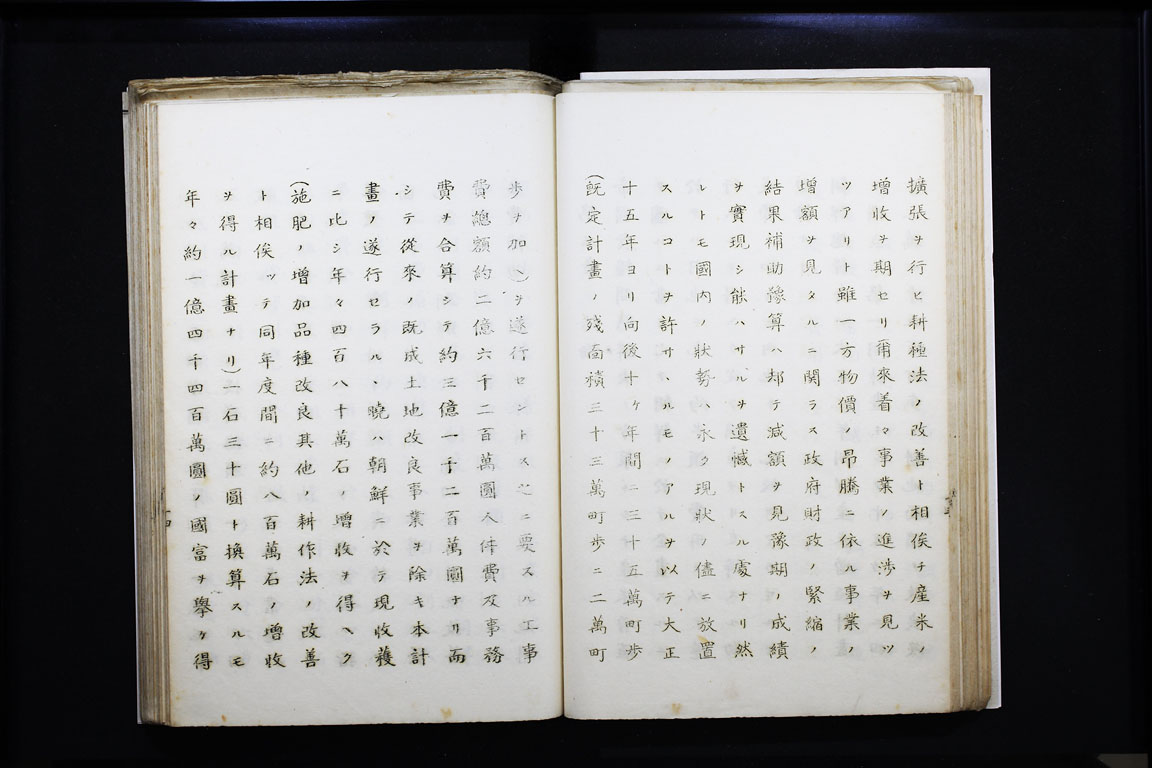 擴張ヲ行ヒ耕種法ノ改善ト相俟チ産米ノ
增收ヲ期セリ爾來着々事業ノ進渉ヲ見ツ
ツアリト雖一方物價ノ昂騰ニ依ル事業ノ
增額ヲ見タルニ関ラス政府財政ノ緊縮ノ
結果補助豫算ハ却テ減額ヲ見豫期ノ成績
ヲ實現シ能ハサルヲ遺憾トスル處ナリ然
レトモ國内ノ狀勢ハ永ク現狀ノ儘ニ放置
スルコトヲ許サヽルモノアルヲ以テ大正
十五年ヨリ向後十ケ年間ニ三十五萬町歩
(既定計畫ノ殘面積三十三萬町歩ニ二萬町
歩ヲ加ヘ)ヲ遂行セントス之ニ要スル工事
費總額約二億六千二百萬圓人件費及事務
費ヲ合算シテ約三億一千二百萬圓ナリ而
シテ從來ノ既成土地改良事業ヲ除キ本計
畫ノ遂行セラルヽ曉ハ朝鮮ニ於テ現收穫
ニ比シ年々四百八十萬石ノ增收ヲ得ヘク
(施肥ノ增加品種改良其他ノ耕作法ノ改善
ト相俟ッテ同年度間ニ約八百萬石ノ增收
ヲ得ル計畫ナリ)一石三十圓ト換算スルモ
年々約一億四千四百萬圓ノ國富ヲ擧ケ得